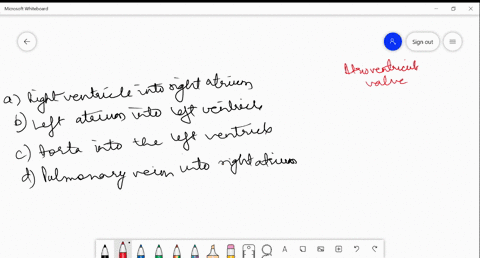 Microsoft Whiteboard
Sign out
Atrioventricular
valve
a) Right ventricle into right atrium
b) Left atrium into left ventricle
c) Aorta into the left ventricle
d) Pulmonary vein into right atrium
A